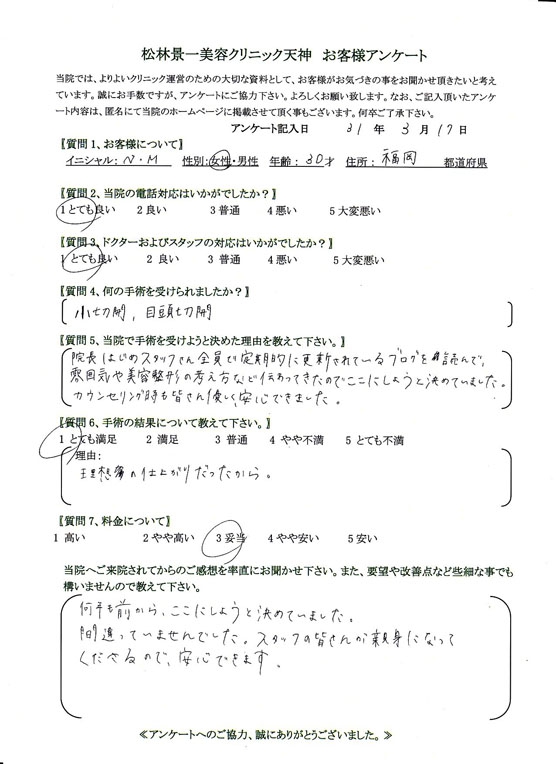 松林景一美容クリニック天神 お客様アンケート
当院では、よりよいクリニック運営のための大切な資料として、お客様がお気づきの事をお聞かせ頂きたいと考え
ています。誠にお手数ですが、アンケートにご協力下さい。よろしくお願い致します。なお、ご記入頂いたアンケ
ート内容は、匿名にて当院のホームページに掲載させて頂く事もございます。何卒ご了承下さい。
アンケート記入日 31 年 3 月 17 日
【質問1、お客様について】
イニシャル: N・M 性別:女性・男性 年齢: 30才 住所: 福岡 都道府県
【質問2、当院の電話対応はいかがでしたか?】
1 とても良い 2 良い 3 普通 4 悪い 5 大変悪い
【質問3、ドクターおよびスタッフの対応はいかがでしたか?】
1 とても良い 2 良い 3 普通 4 悪い 5 大変悪い
【質問4、何の手術を受けられましたか?】
小切開, 目頭切開
【質問5、当院で手術を受けようと決めた理由を教えて下さい。】
院長はじめスタッフさん全員で定期的に更新されているブログを読んで、
雰囲気や美容整形の考え方など伝わってきたのでここにしようと決めていました。
カウンセリング時も皆さん優しく安心できました。
【質問6、手術の結果について教えて下さい。】
1 とても満足 2 満足 3 普通 4 やや不満 5 とても不満
理由:
理想の仕上がりだったから。
【質問7、料金について】
1 高い 2 やや高い 3 妥当 4 やや安い 5 安い
当院へご来院されてからのご感想を率直にお聞かせ下さい。また、要望や改善点など些細な事でも
構いませんので教えて下さい。
何年も前から、ここにしようと決めていました。
間違っていませんでした。スタッフの皆さんが親身になって
くださるので、安心できます。
≪アンケートへのご協力、誠にありがとうございました。≫